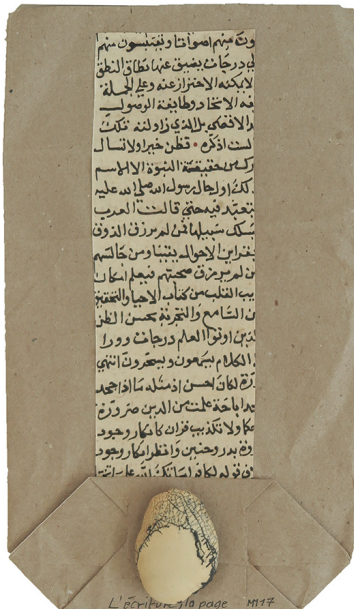 ون منهم اصواتا ويقتبسون منهم
درجات يضيق عنها نطاق النطق
لا يمكنه الاحتراز عنه وعلى الجملة
الاتحاد وطايفة الوصول
الاقصى بل الذي زاولته تلك
لست اذكره • فظن خيرا ولا تسال
رك من حقيقة النبوة الا الاسم
لك اول حال رسول الله صلى الله عليه
يتعبد فيه حتى قالت العرب
سلك سبيلها فمن لم يرزق الذوق
بقراين الاحوال يقينا ومن جالسهم
ن لم يرزق صحبتهم فيعلم امكان
يب القلب من كتاب الاحيا والتحقيق
من التسامع والتجربة بحسن الظن
لذين اوتوا العلم درجات وورا
الكلام يسمعون ويسخرون انتهى
رة لكان احسن اذ مثله ماذا جحد
باحة علمت من الدين ضرورة
ولا تكذيب قران كانكار وجود
وة بدر وحنين وانظر انكار وجود
قوله
L'écriture la page MM17